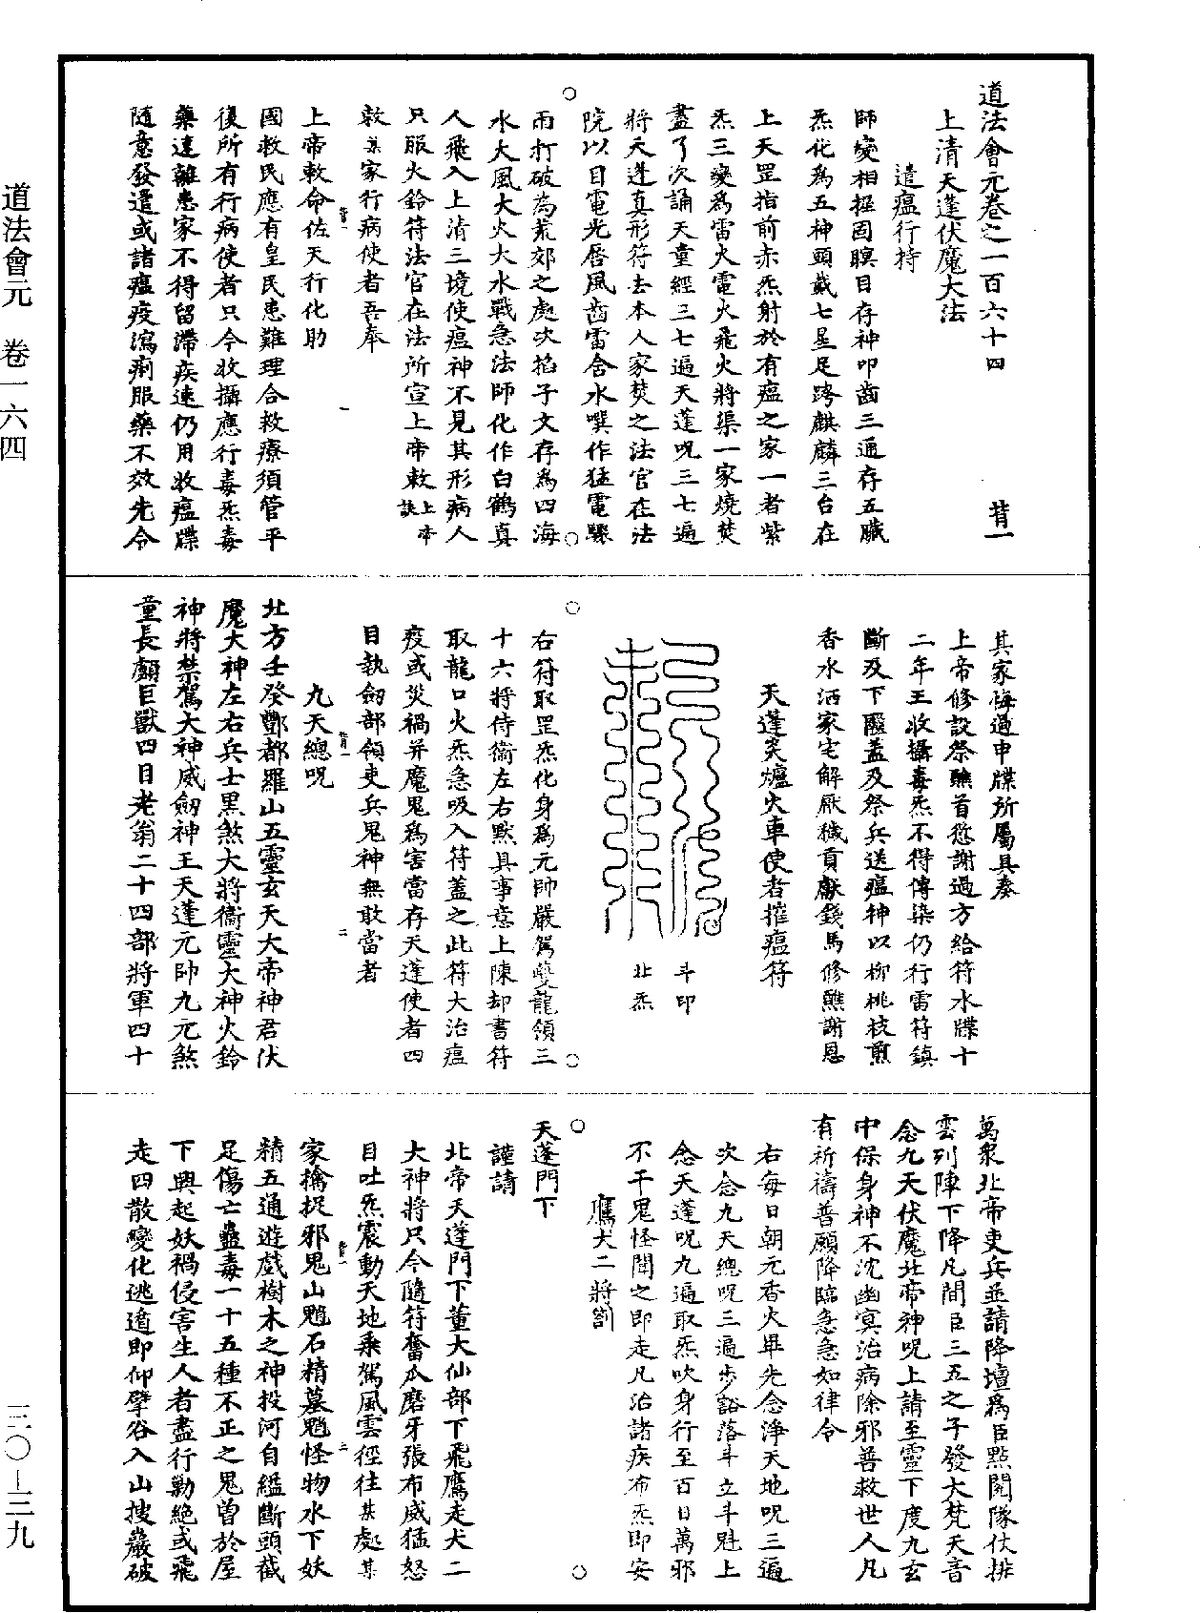 道法會元卷之一百六十四　背一
上清天蓬伏魔大法
遣瘟行持
師變相握固瞑目存神叩齒三通存五臟
炁化為五神頭戴七星足跨麒麟三台在
上天罡指前赤炁射於有瘟之家一者紫
炁三變為雷火電火飛火將渠一家燒焚
盡了次誦天童經三七遍天蓬呪三七遍
將天蓬真形符去本人家焚之法官在法
院以目電光唇風齒雷舍水噀作猛電驟
雨打破為荒郊之處次掐子文存為四海
水大風大火大水戰急法師化作白鶴真
人飛入上清三境使瘟神不見其形病人
只服火鈴符法官在法所宣上帝敕上帝訣
敕某家行病使者吾奉
上帝敕命佐天行化助
國救民應有皇民患難理合救療須管平
復所有行病使者只今收攝應行毒炁毒
藥遠離患家不得留滯疾速仍用收瘟牒
隨意發遣或諸瘟疫瀉痢服藥不效先令
其家悔過申牒所屬具奏
上帝修設祭醮首愆謝過方給符水牒十
二年王收攝毒炁不得傳染仍行雷符鎮
斷及下匾蓋及祭兵送瘟神以柳桃枝煎
香水洒家宅解厭穢貢獻錢馬修醮謝恩
天蓬炎爐火車使者摧瘟符
斗印
北炁
右符取罡炁化身為元帥嚴駕雙龍領三
十六將侍衞左右默具事意上陳却書符
取龍口火炁急吸入符蓋之此符大治瘟
疫或災禍并魔鬼為害當存天蓬使者四
目執劒部領吏兵鬼神無敢當者
九天總呪
北方壬癸酆都羅山五靈玄天大帝神君伏
魔大神左右兵士黑煞大將衞靈大神火鈴
神將禁駕大神威劒神王天蓬元帥九元煞
童長顱巨獸四目老翁二十四部將軍四十
萬眾北帝吏兵並請降壇為臣點閱隊仗排
雲列陣下降凡間臣三五之子發大梵天音
念九天伏魔北帝神呪上請至靈下度九玄
中保身神不沈幽冥治病除邪普救世人凡
有祈禱普願降臨急急如律令
右每日朝元香火畢先念淨天地呪三遍
次念九天總呪三遍步豁落斗立斗魁上
念天蓬呪九遍取炁吹身行至百日萬邪
不干鬼怪聞之即走凡治諸疾布炁即安
鷹犬二將劄
天蓬門下
謹請
北帝天蓬門下董大仙部下飛鷹走犬二
大神將只今隨符奮爪磨牙張布威猛怒
目吐炁震動天地乘駕風雲徑往某處某
家擒捉邪鬼山魈石精墓魈怪物水下妖
精五通遊戲樹木之神投河自縊斷頭截
足傷亡蠱毒一十五種不正之鬼曾於屋
下興起妖禍侵害生人者盡行勦絕或飛
走四散變化逃遁即仰擘谷入山搜巖破
道法會元　卷一六四
三〇—三九